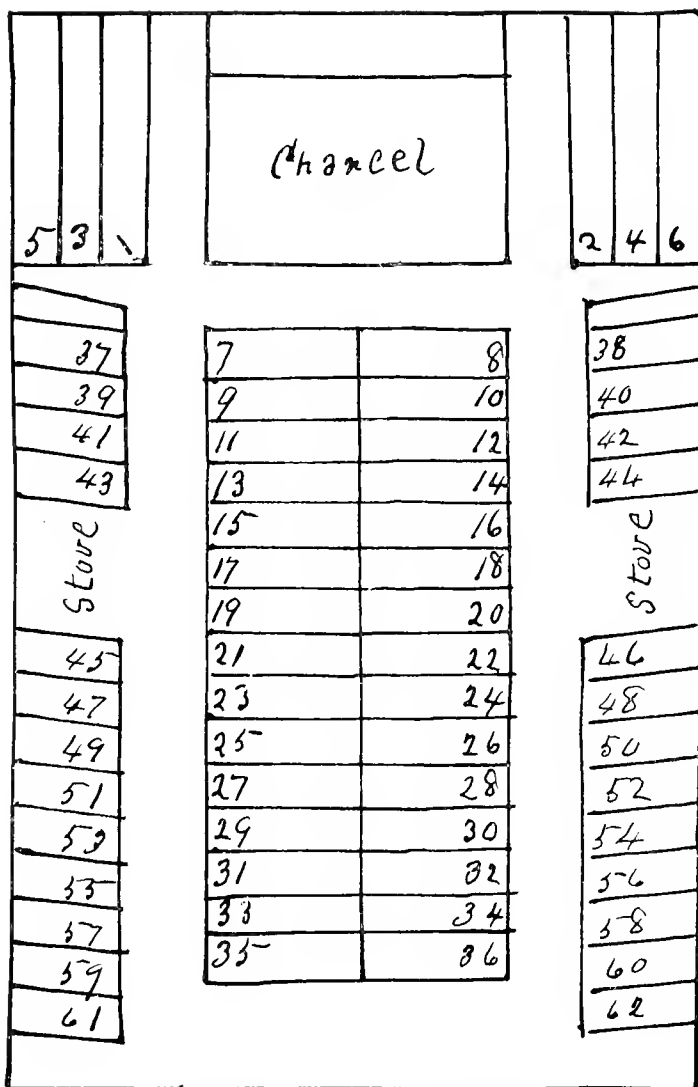 Chancel
5 3 1
2 4 6
37
39
41
43
Stove
45
47
49
51
53
55
57
59
61
7 8
9 10
11 12
13 14
15 16
17 18
19 20
21 22
23 24
25 26
27 28
29 30
31 32
33 34
35 36
38
40
42
44
Stove
46
48
50
52
54
56
58
60
62